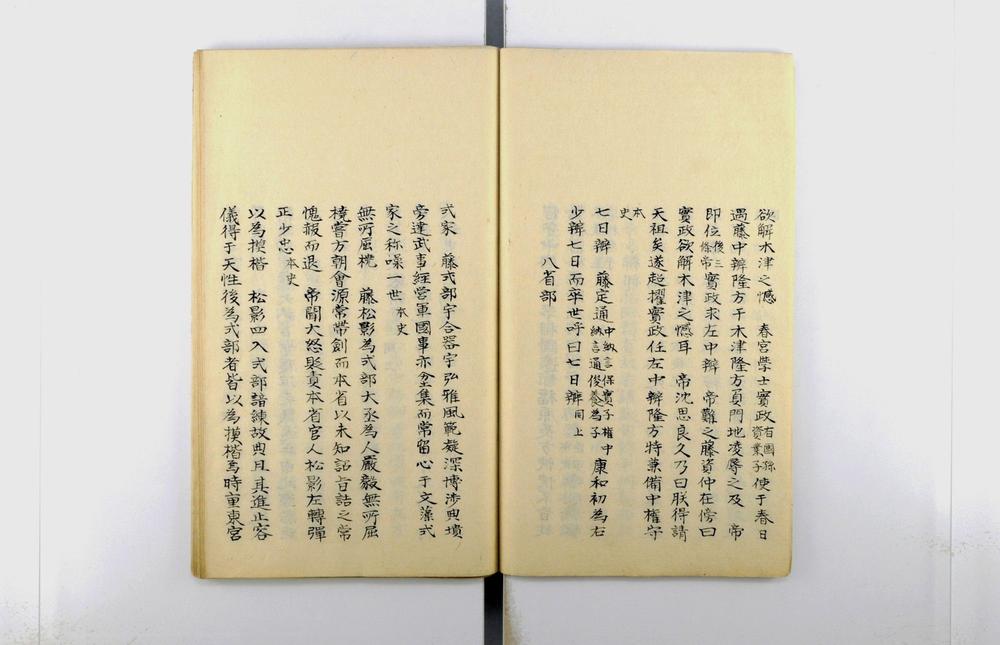 欲解木津之憾　春宮學士實政有國孫資業子使于春日
過藤中辨隆方于木津隆方負門地凌辱之及　帝
即位後三條帝實政求左中辨　帝難之藤資仲在傍曰
實政欲解木津之憾耳　帝沈思良久乃曰朕得請
天祖矣遂超擢實政任左中辨隆方特兼備中權守
本史
七日辨　藤定通中納言保實子權中納言通俊養為子康和初為右
少辨七日而卒世呼曰七日辨同上
八省部
式家　藤式部宇合器宇弘雅風範凝深博涉典墳
旁達武事經營軍國事亦坌集而常留心于文藻式
家之称噪一世本史
無所屈橈　藤松影為式部大丞為人嚴毅無所屈
橈嘗方朝會源常帶劍而本省以未知詔旨詰之常
愧赧而退　帝聞大怒貶責本省官人松影左轉彈
正少忠本史
以為模楷　松影四入式部諳練故典且其進止容
儀得于天性後為式部者皆以為模楷為時童東宮